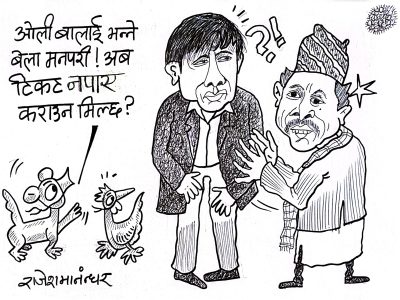 ओली बालाई भन्ने
बेला मनपरी! अब
टिकट नपाए
कराउन मिल्छ?
?!
राजेशमानन्धर